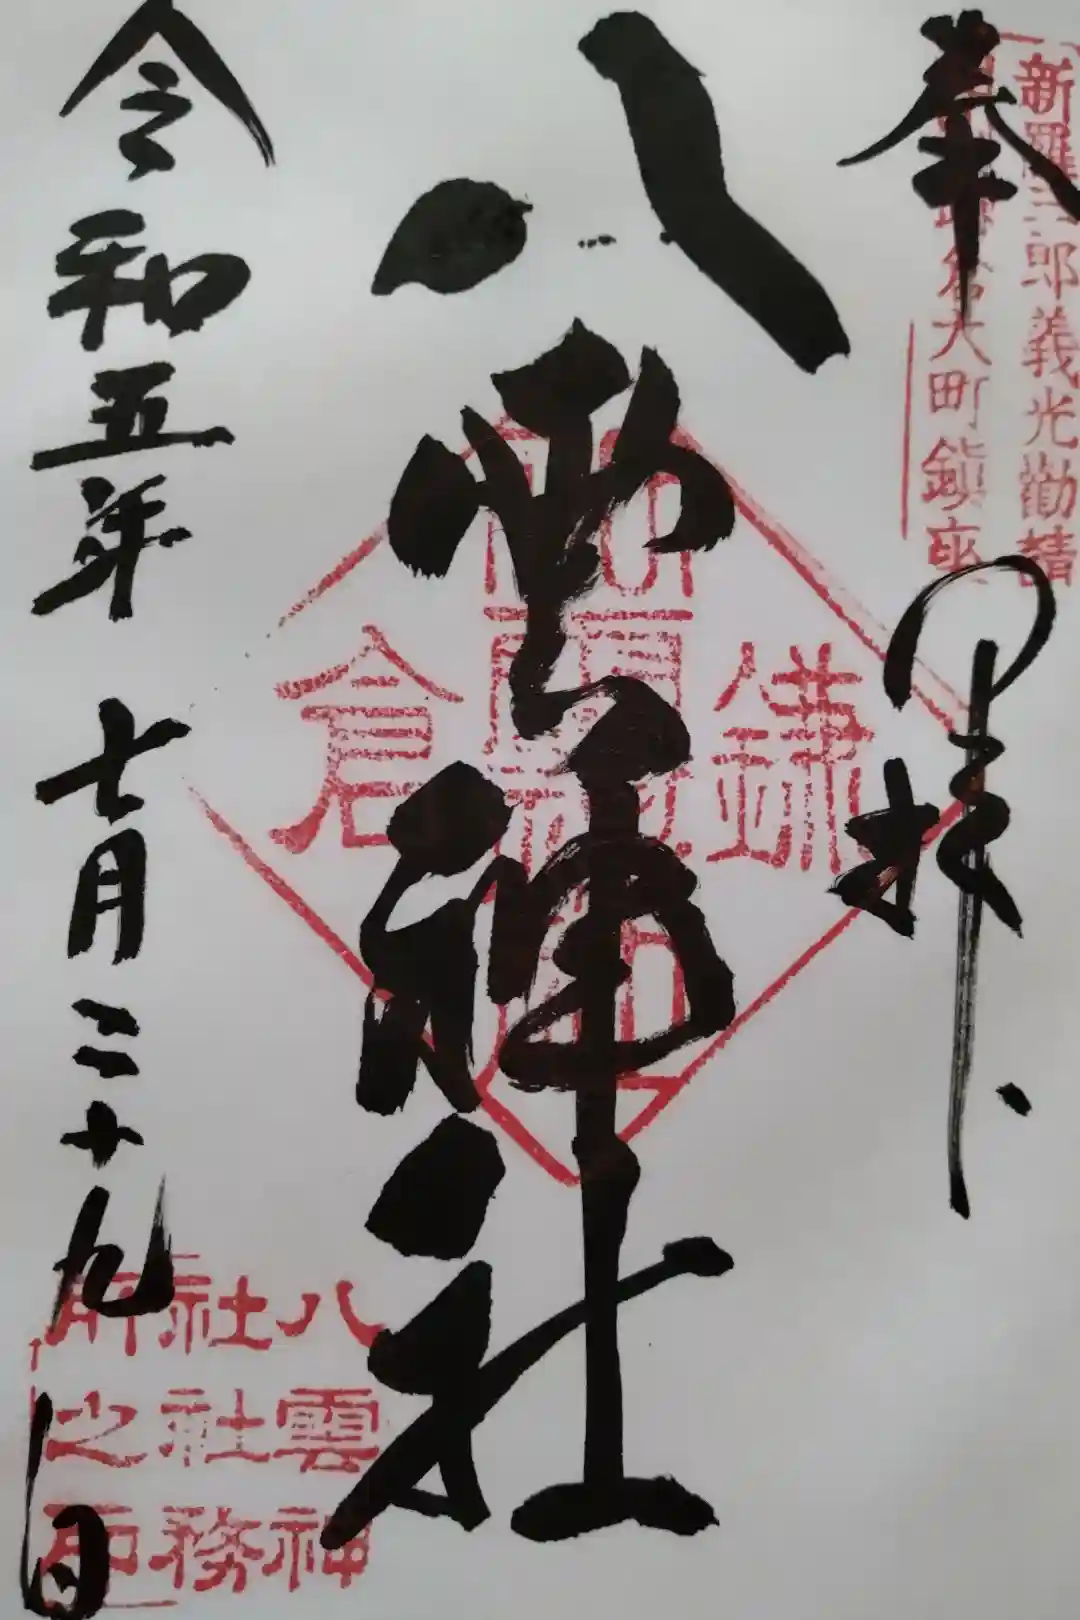 新羅三郎義光勸請
倉大町鎮座
奉拝
八雲神社
鎌
倉
八雲神
社社務
所之印
令和五年七月二十九日